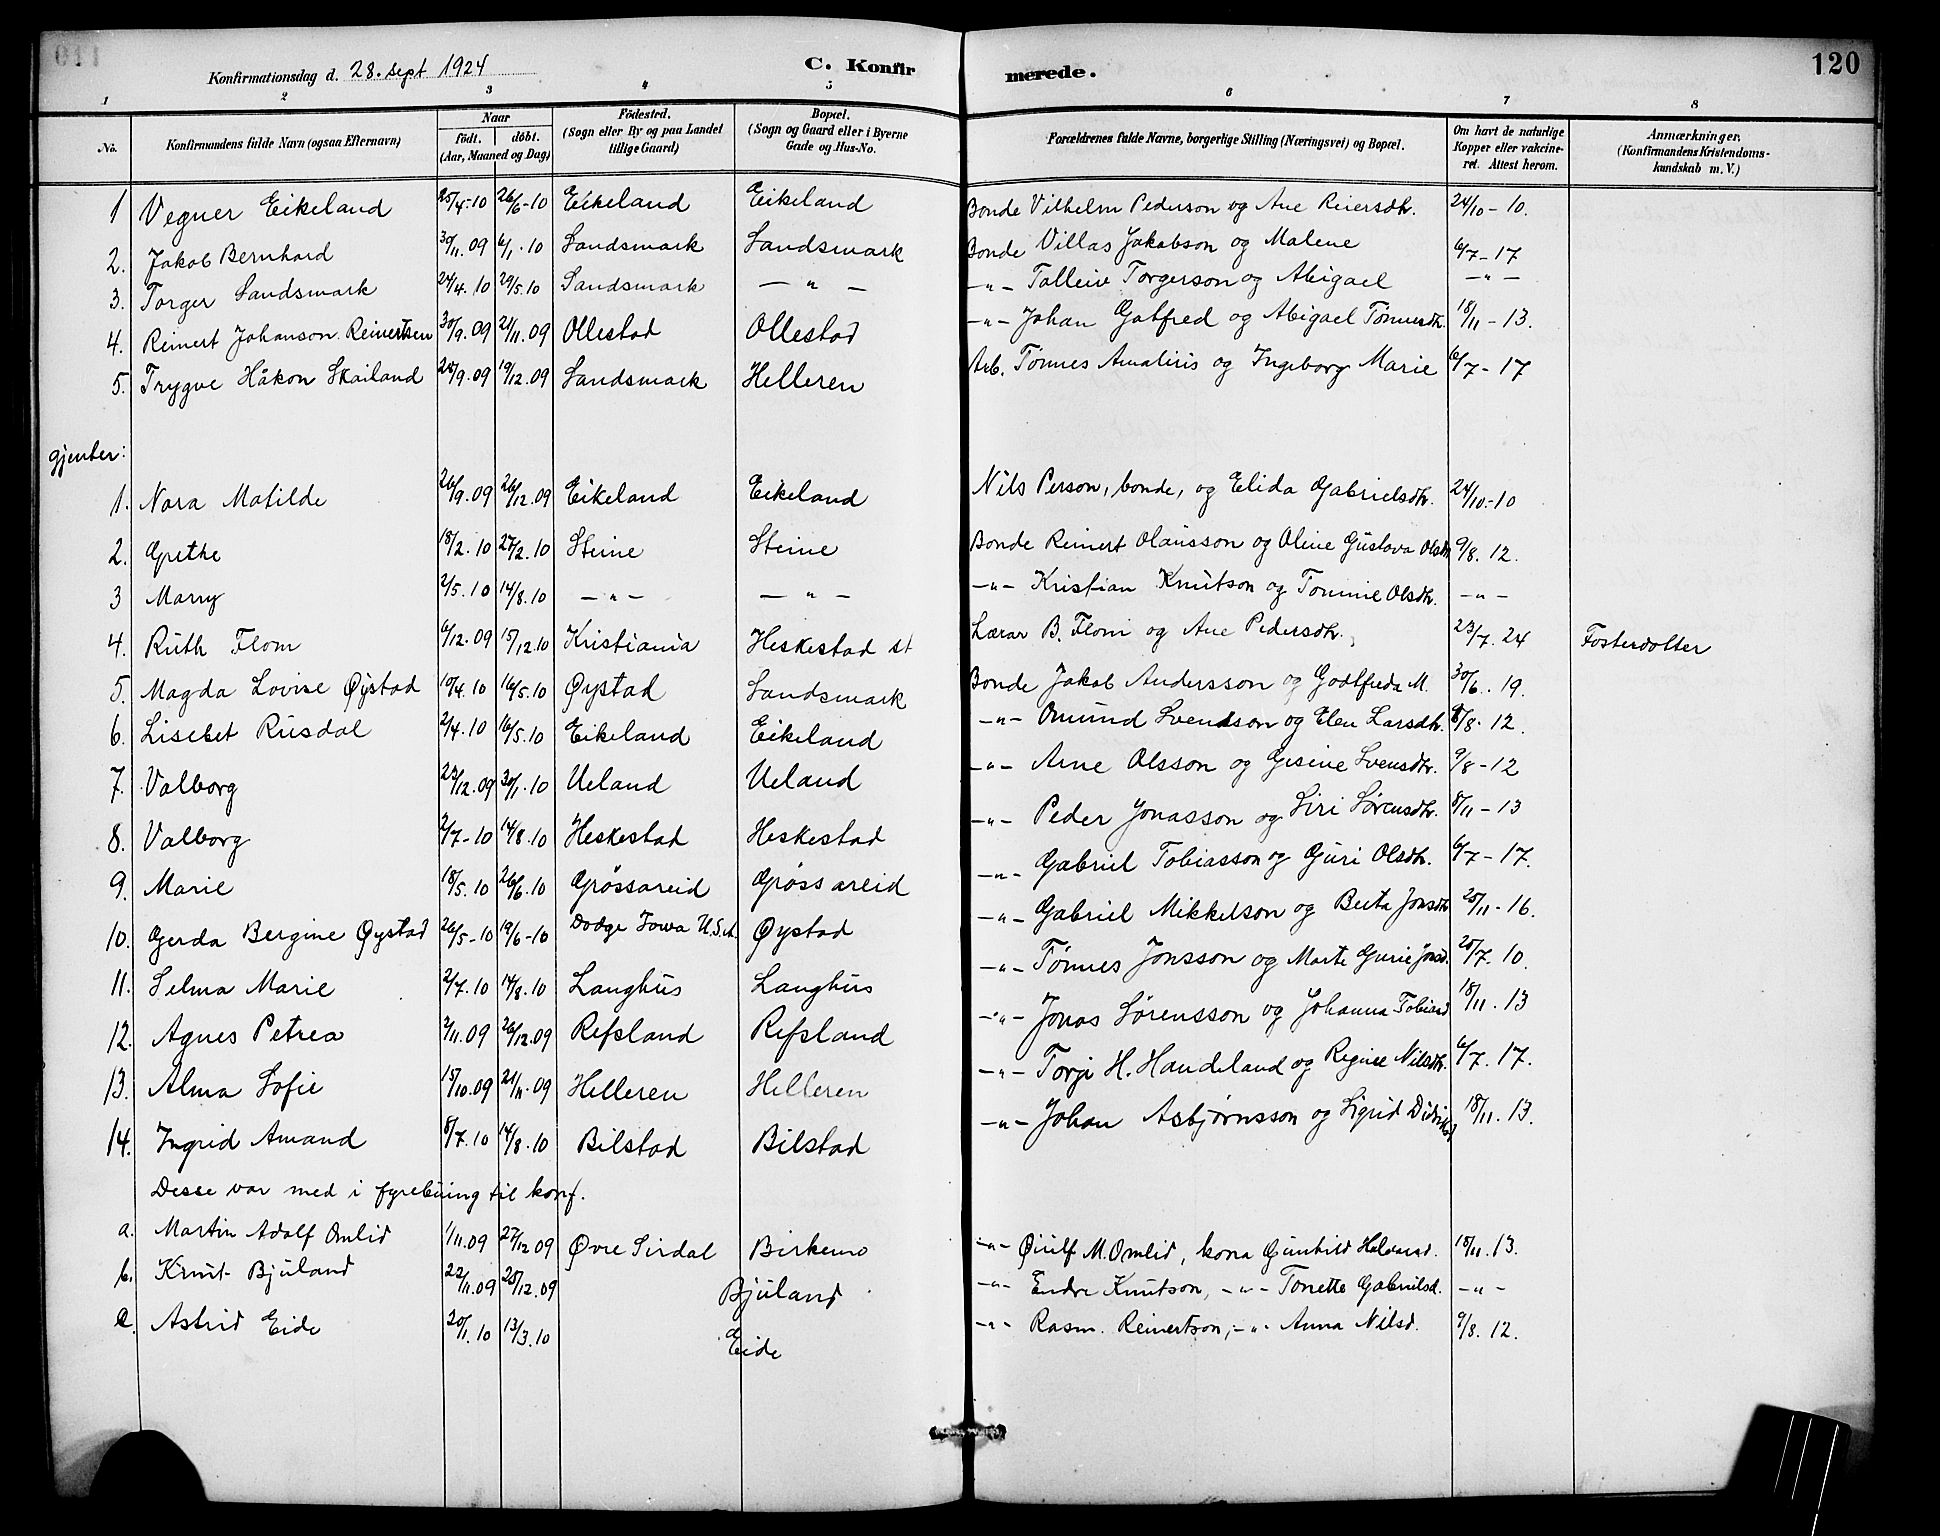 Konfirmationsdag d. 28. sept 1924 C. Konfirmerede. 120
1 2 3 4 5 6 7 8
No. Konfirmandens fulde Navn (ogsaa Efternavn) Naar födt. döbt. (Aar, Maaned og Dag) Födested. (Sogn eller By og paa Landet tillige Gaard) Bopæl. (Sogn og Gaard eller i Byerne Gade og Hus-No. Forældrenes fulde Navne, borgerlige Stilling (Næringsvei) og Bopæl. Om havt de naturlige Kopper eller vakcineret. Attest herom. Anmærkninger. (Konfirmandens Kristendomskundskab m. V.)
1 Vegner Eikeland 25/4-10 26/6-10 Eikeland Eikeland Bonde Vilhelm Pederson og Ane Reiersdtr. 24/10-10.
2. Jakob Bernhard 30/11.09 6/1.10 Landsmark Landsmark Bonde Villas Jakobson og Malene 6/7-17
3. Torger Landsmark 24/4.10 29/5.10 Landsmark — " — -"- Tolleiv Torgerson og Abigael — " —
4. Reinert Johanson Reinertsen 30/9.09 21/11.09 Ollestad Ollestad -"- Johan Gotfred og Abigael Tönnesdtr. 18/11-13.
5. Trygve Håkon Skailand 28/9.09 19/12.09 Landsmark Helleren Arb. Tönnes Amaliris og Ingeborg Marie 6/7-17
gjenter:
1. Nora Matilde 26/9.09 26/12.09 Eikeland Eikeland Nils Person, bonde, og Elida Gabrielsdtr. 24/10-10
2. Grethe 18/2.10 27/2.10 Steine Steine Bonde Reinert Olausson og Oline Gustava Olsdtr 9/8.12.
3 Marry 2/5.10 14/8.10 — " — — " — -"- Kristian Knutson og Tomine Olsdtr. -"-
4. Ruth Flom 6/12.09 15/12.10 Kristiania Heskestad st Lærar B. Flom og Ane Pedersdtr. 23/7.24 Fosterdotter
5. Magda Lovise Øystad 10/4.10 16/5.10 Øystad Landsmark Bonde Jakob Andersson og Godtfreda M. 30/6.19.
6. Lisebet Rusdal 2/4.10 16/5.10 Eikeland Eikeland -"- Omund Svendson og Elen Larsdtr. 9/8.12.
7. Valborg 23/12.09 30/1.10 Ueland Ueland -"- Arne Olsson og Gisine Svensdtr. 9/8-12
8. Valborg 2/7-10 14/8.10 Heskestad Heskestad -"- Peder Jonasson og Siri Sørensdtr. 8/11-13
9. Marie 18/5.10 26/6.10 Grössareid Grössareid -"- Gabriel Tobiasson og Guri Olsdtr. 6/7-17.
10. Gerda Bergine Øystad 26/5-10 19/6-10 Dodge Iowa U.S.A. Øystad -"- Gabriel Mikkelson og Berta Jonsdtr 25/11-16.
11. Selma Marie 2/7.10 14/8.10 Langhus Langhus -"- Tønnes Jonsson og Marte Gurie Jonsd. 25/7.10.
12. Agnes Petrea 2/11.09 26/12.09 Refsland Refsland -"- Jonas Sörensson og Johanna Tobiasd 18/11.13
13. Alma Sofie 15/10.09 21/11.09 Helleren Helleren -"- Torje H. Handeland og Regine Nilsdtr. 6/7.17.
14. Ingrid Amand 8/7.10 14/8.10 Bilstad Bilstad -"- Johan Asbjørnsson og Sigrid Didriksd 18/11.13.
Desse var med i fyrebuing til konf.
a. Martin Adolf Omlid 1/11.09 27/12.09 Øvre Sirdal Birkemo -"- M. Omlid, kona Gunhild Halvorsd. 18/11.13.
b. Knut Bjuland 22/11.09 25/12.09 Bjuland -"- Endre Knutson, -"- Tonette Gabrielsd. -"-
c. Astrid Eide 20/1.10 13/3.10 Eide -"- Rasm. Reinertson, -"- Anna Nilsd. 9/8.12.